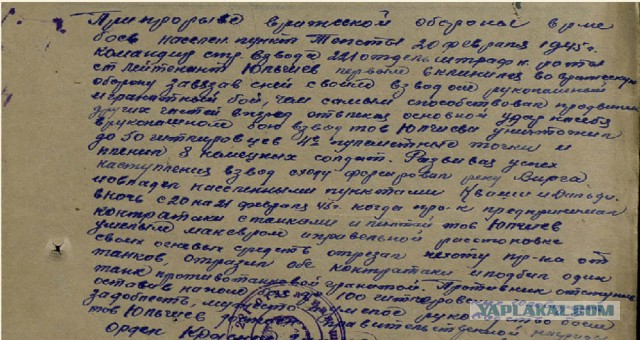 При прорыве вражеской обороны в р-не
боев населен. пункт Топсты 20 февраля 1945 г.
командир стр. взвода 221 отдельн штрафн. роты
ст лейтенант Юлчиев первым вклинился во вражескую
оборону завязав с ней своим взводом рукопашный
и гранатный бой, чем самым способствовал продвиже
других частей вперед отвлекая основной удар на себя
в рукопашном бою взвод тов Юлчиева уничтожил
до 50 гитлеровцев 4е пулеметные точки и
пленил 8 немецких солдат. Развивая успех
наступления взвод сходу форсировал реку Вирга
и овладел населенными пунктами
в ночь с 20 на 21 февраля 45 г. когда пр-к предпринимал
контратаки с танками и пехотой тов Юлчиев
умелым маневром и правильной расстановке
своих огневых средств отрезал пехоту пр-ка от
танков, отразил обе контратаки и подбил один
танк противотанковой гранатой. Противник отступил
оставив на поле 100 гитлеровцев
За доблесть, мужество руководство боем
тов Юлчиев правительственной награды
Орден Красн
YAPLAKAL.COM